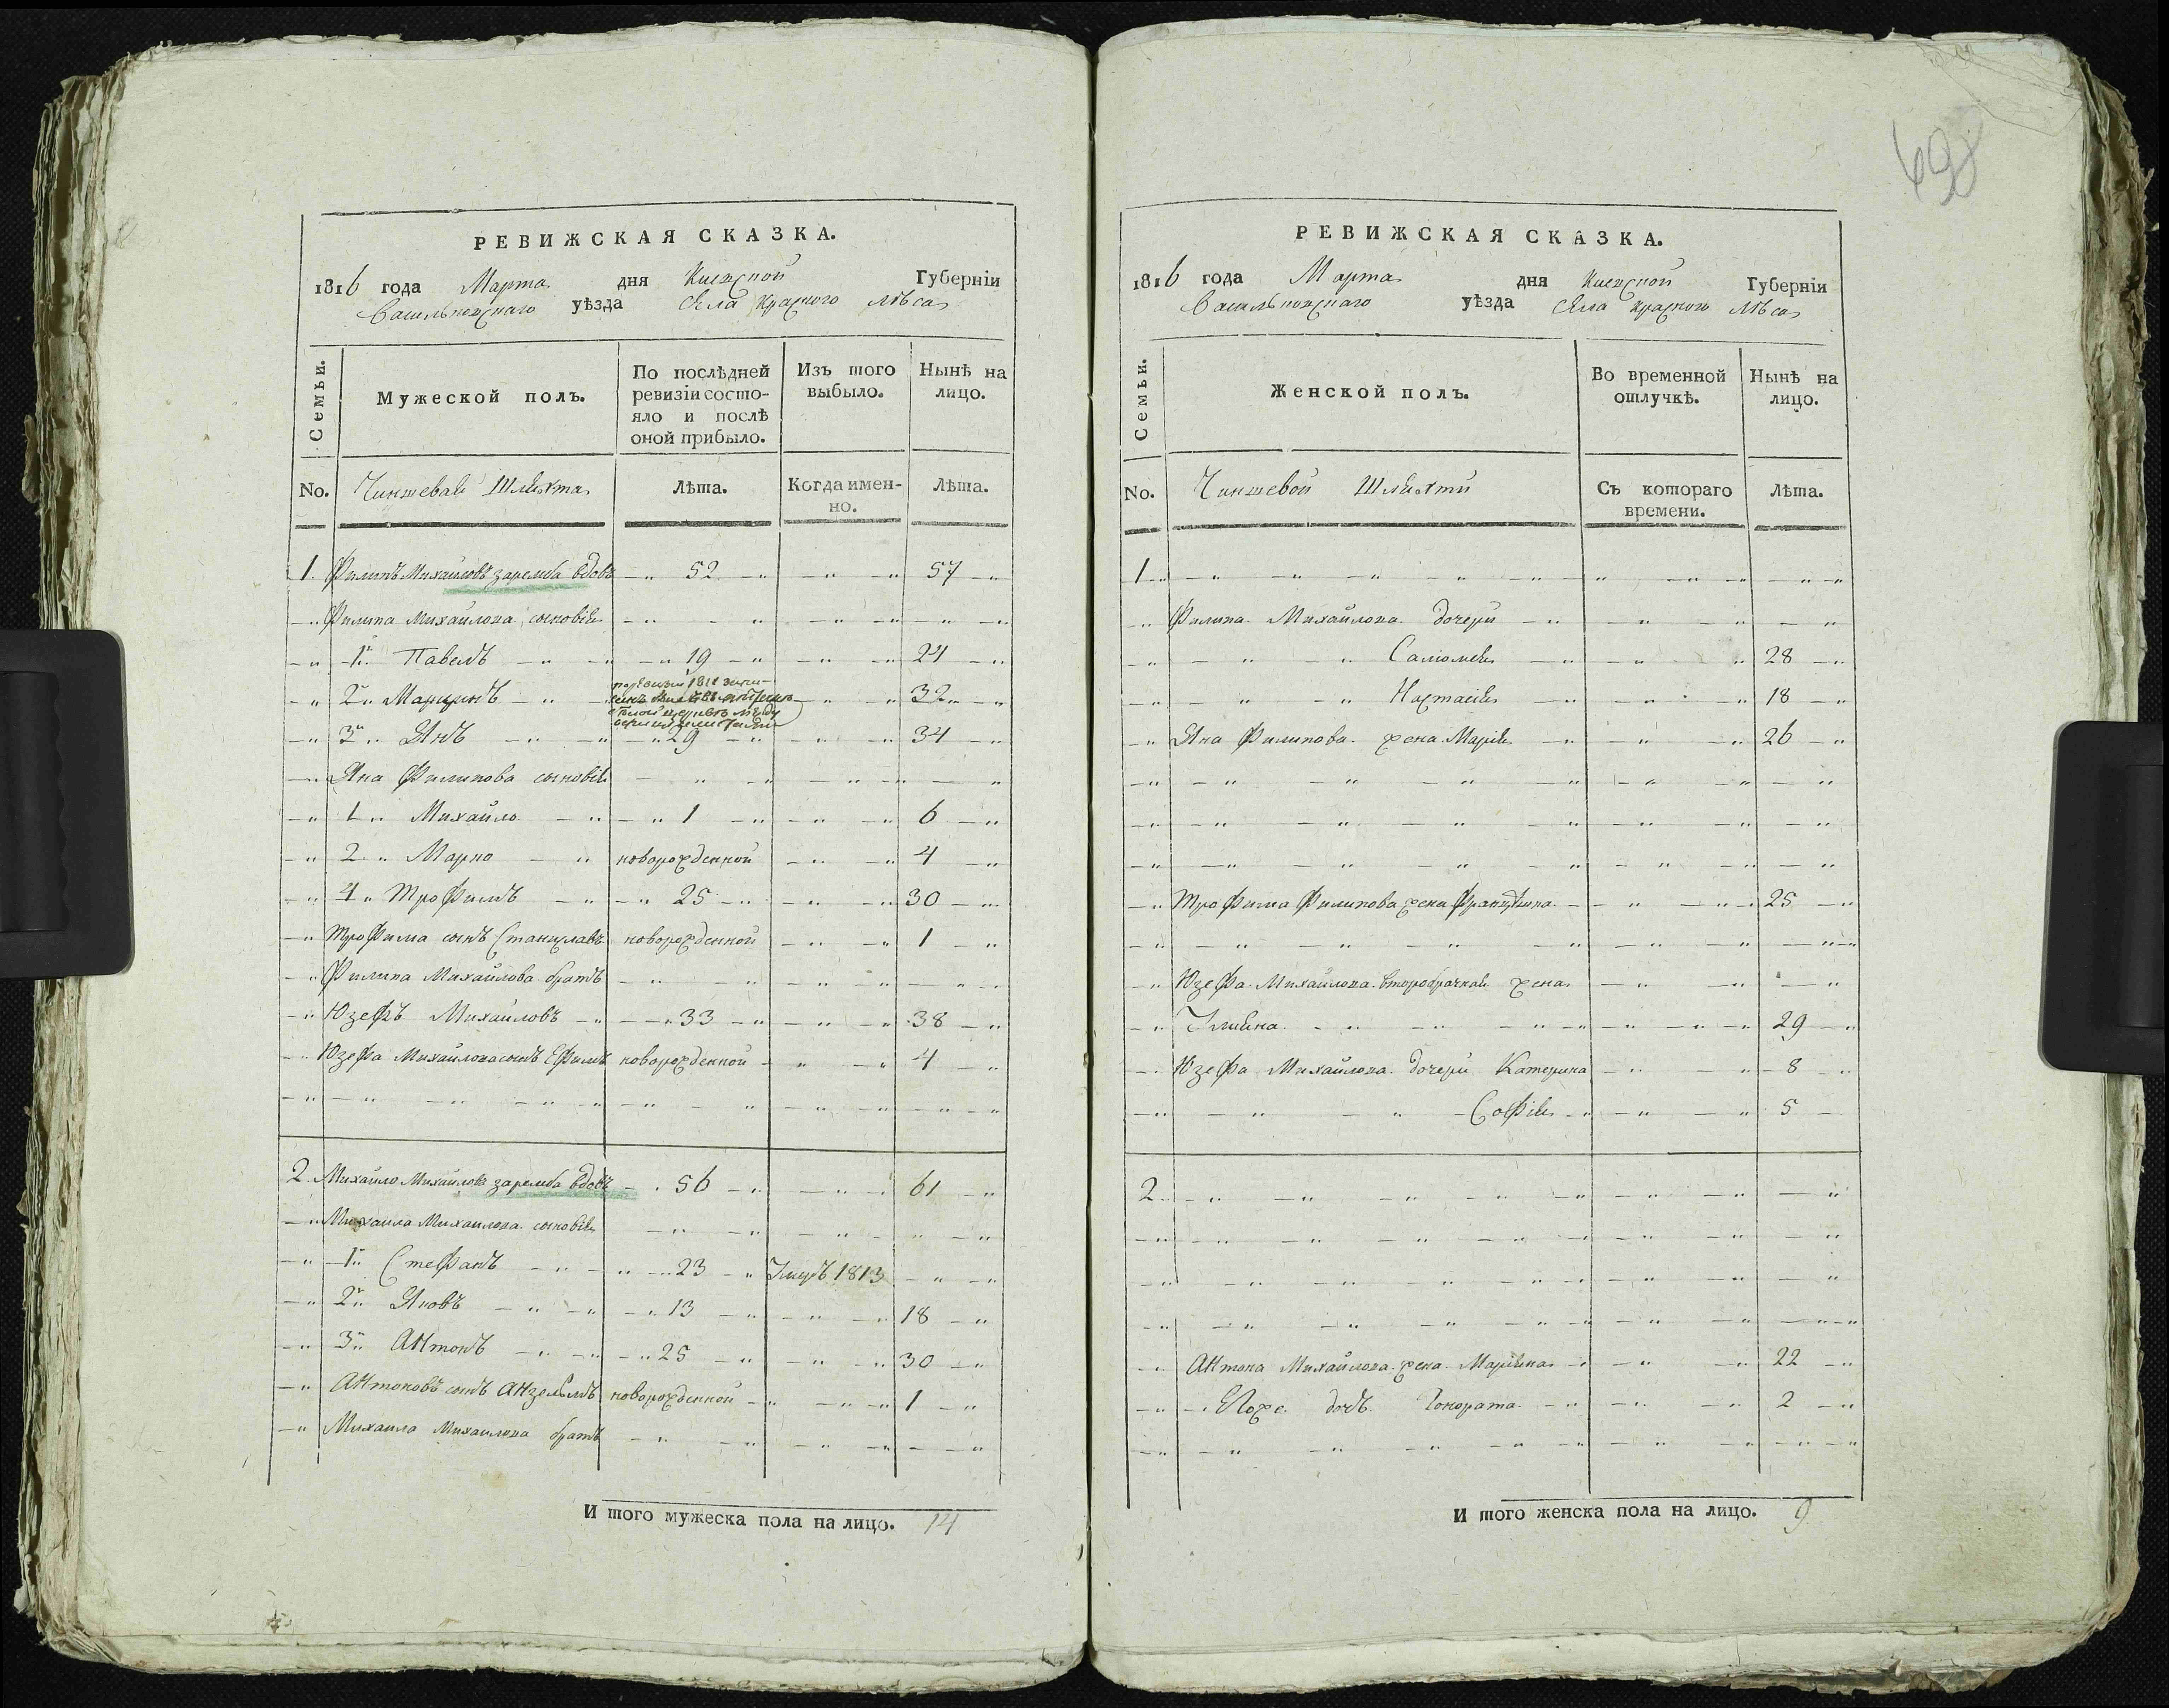 698
РЕВИЖСКАЯ СКАЗКА.
1816 года Марта дня Киевской Губернїи
Васильковскаго уѣзда села Красного Лѣса
Семьи.
Мужеской полъ.
По послѣдней ревизїи состо-
яло и послѣ
оной прибыло.
Изъ того
выбыло.
Нынѣ на
лицо.
No. Чиншевая Шляхта Лѣта. Когда имен-
но. Лѣта.
1. Филипъ Михайловъ Заремба вдовъ 52 57
Филипа Михайлова сыновія
1й Павелъ 19 24
2й Марцинъ 32
3й Янъ 29 34
Яна Филипова сыновія
1 Михайло 1 6
2 Марко новорожденной 4
4 Трофимъ 25 30
Трофима сынъ Станиславъ новорожденной 1
Филипа Михайлова братъ
Юзефъ Михайловъ 33 38
Юзефа Михайлова сынъ Ефимъ новорожденной 4
2. Михайло Михайловъ Заремба вдовъ 56 61
Михаила Михайлова сыновія
1й Стефанъ 23 Умеръ 1813
2й Яковъ 13 18
3й Антонъ 25 30
Антоновъ сынъ Анзельмъ новорожденной 1
Михаила Михайлова братъ
И того мужеска пола на лицо. 14
РЕВИЖСКАЯ СКАЗКА.
1816 года Марта дня Киевской Губернїи
Васильковскаго уѣзда села Красного Лѣса
Семьи.
Женской полъ.
Во временной
отлучкѣ.
Нынѣ на
лицо.
No. Чиншевой Шляхты Съ котораго
времени. Лѣта.
1
Филипа Михайлова дочери
Саломея 28
Настасія 18
Яна Филипова жена Марія 26
Трофима Филипова жена Францишка 25
Юзефа Михайлова второбрачная жена
Улияна 29
Юзефа Михайлова дочери Катерина 8
Софія 5
2
Антона Михайлова жена Марияна 22
Его же дочь Гонората 2
И того женска пола на лицо. 9